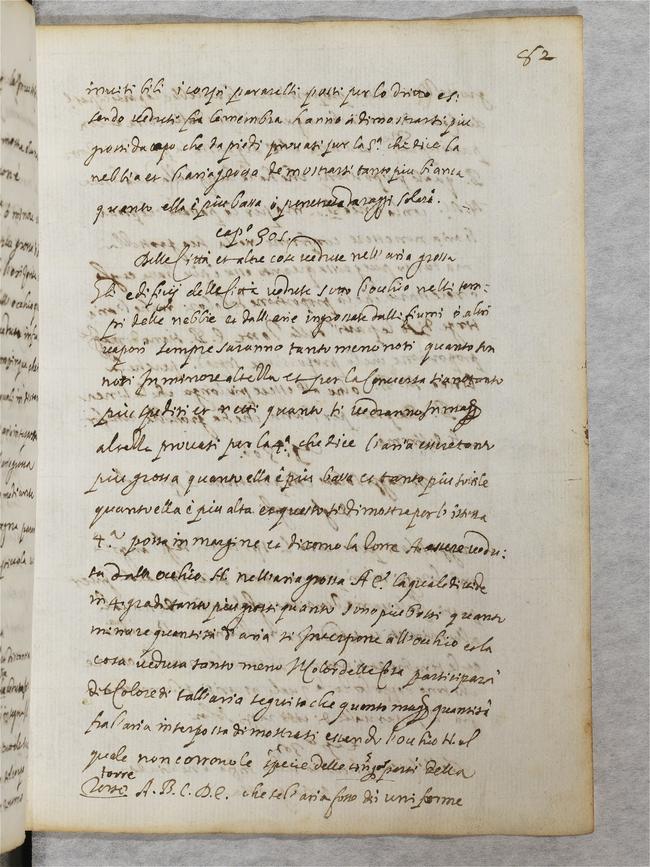 82
invisibili i corpi paralelli posti per lo dritto es:
sendo veduti fra le membra hanno à dimostrarsi piu
grossi da capo che da piedi provasi per la 9ª che dice la
nebbia et l'aria grossa de mostrarsi tanto piu bianca
quanto ella è piu bassa ò penetrata da raggi solari.
cap.º 305.
Delle Città et altre cose vedute nell'aria grossa
Gli edifizij delle Città vedute sotto l'occhio nelli tem:
pi delle nebbie et dall'arie ingrossate dalli fiumi ò altri
vapori sempre saranno tanto meno noti quanto fia
noti In minore altezza et per la Conversa tanto
piu spediti et netti quanto si vedranno In magg
altezza provasi per la 4ª che dice l'aria essere tanto
piu grossa quanto ella è piu bassa et tanto piu sottile
quanto ella è piu alta et questo si dimostra per l'istessa
4ª posta in margine et diremo la Torre A essere vedu:
ta dall'occhio N. nell'aria grossa A C. la quale divide
in 4. gradi tanto piu grossi quanto sono piu bassi quanto
minore quantità d'aria si Interpone all'occhio et la
cosa veduta tanto meno il Color della Cosa participarà
del Colore di tall'aria seguita che quanto magg quantità
fra l'aria interposta dimostrasi essendo l'occhio N al
quale non corrono le spezie delle cinque parti della
torre
Torre A. B. C. D. E. che se l'aria fosse di uniforme